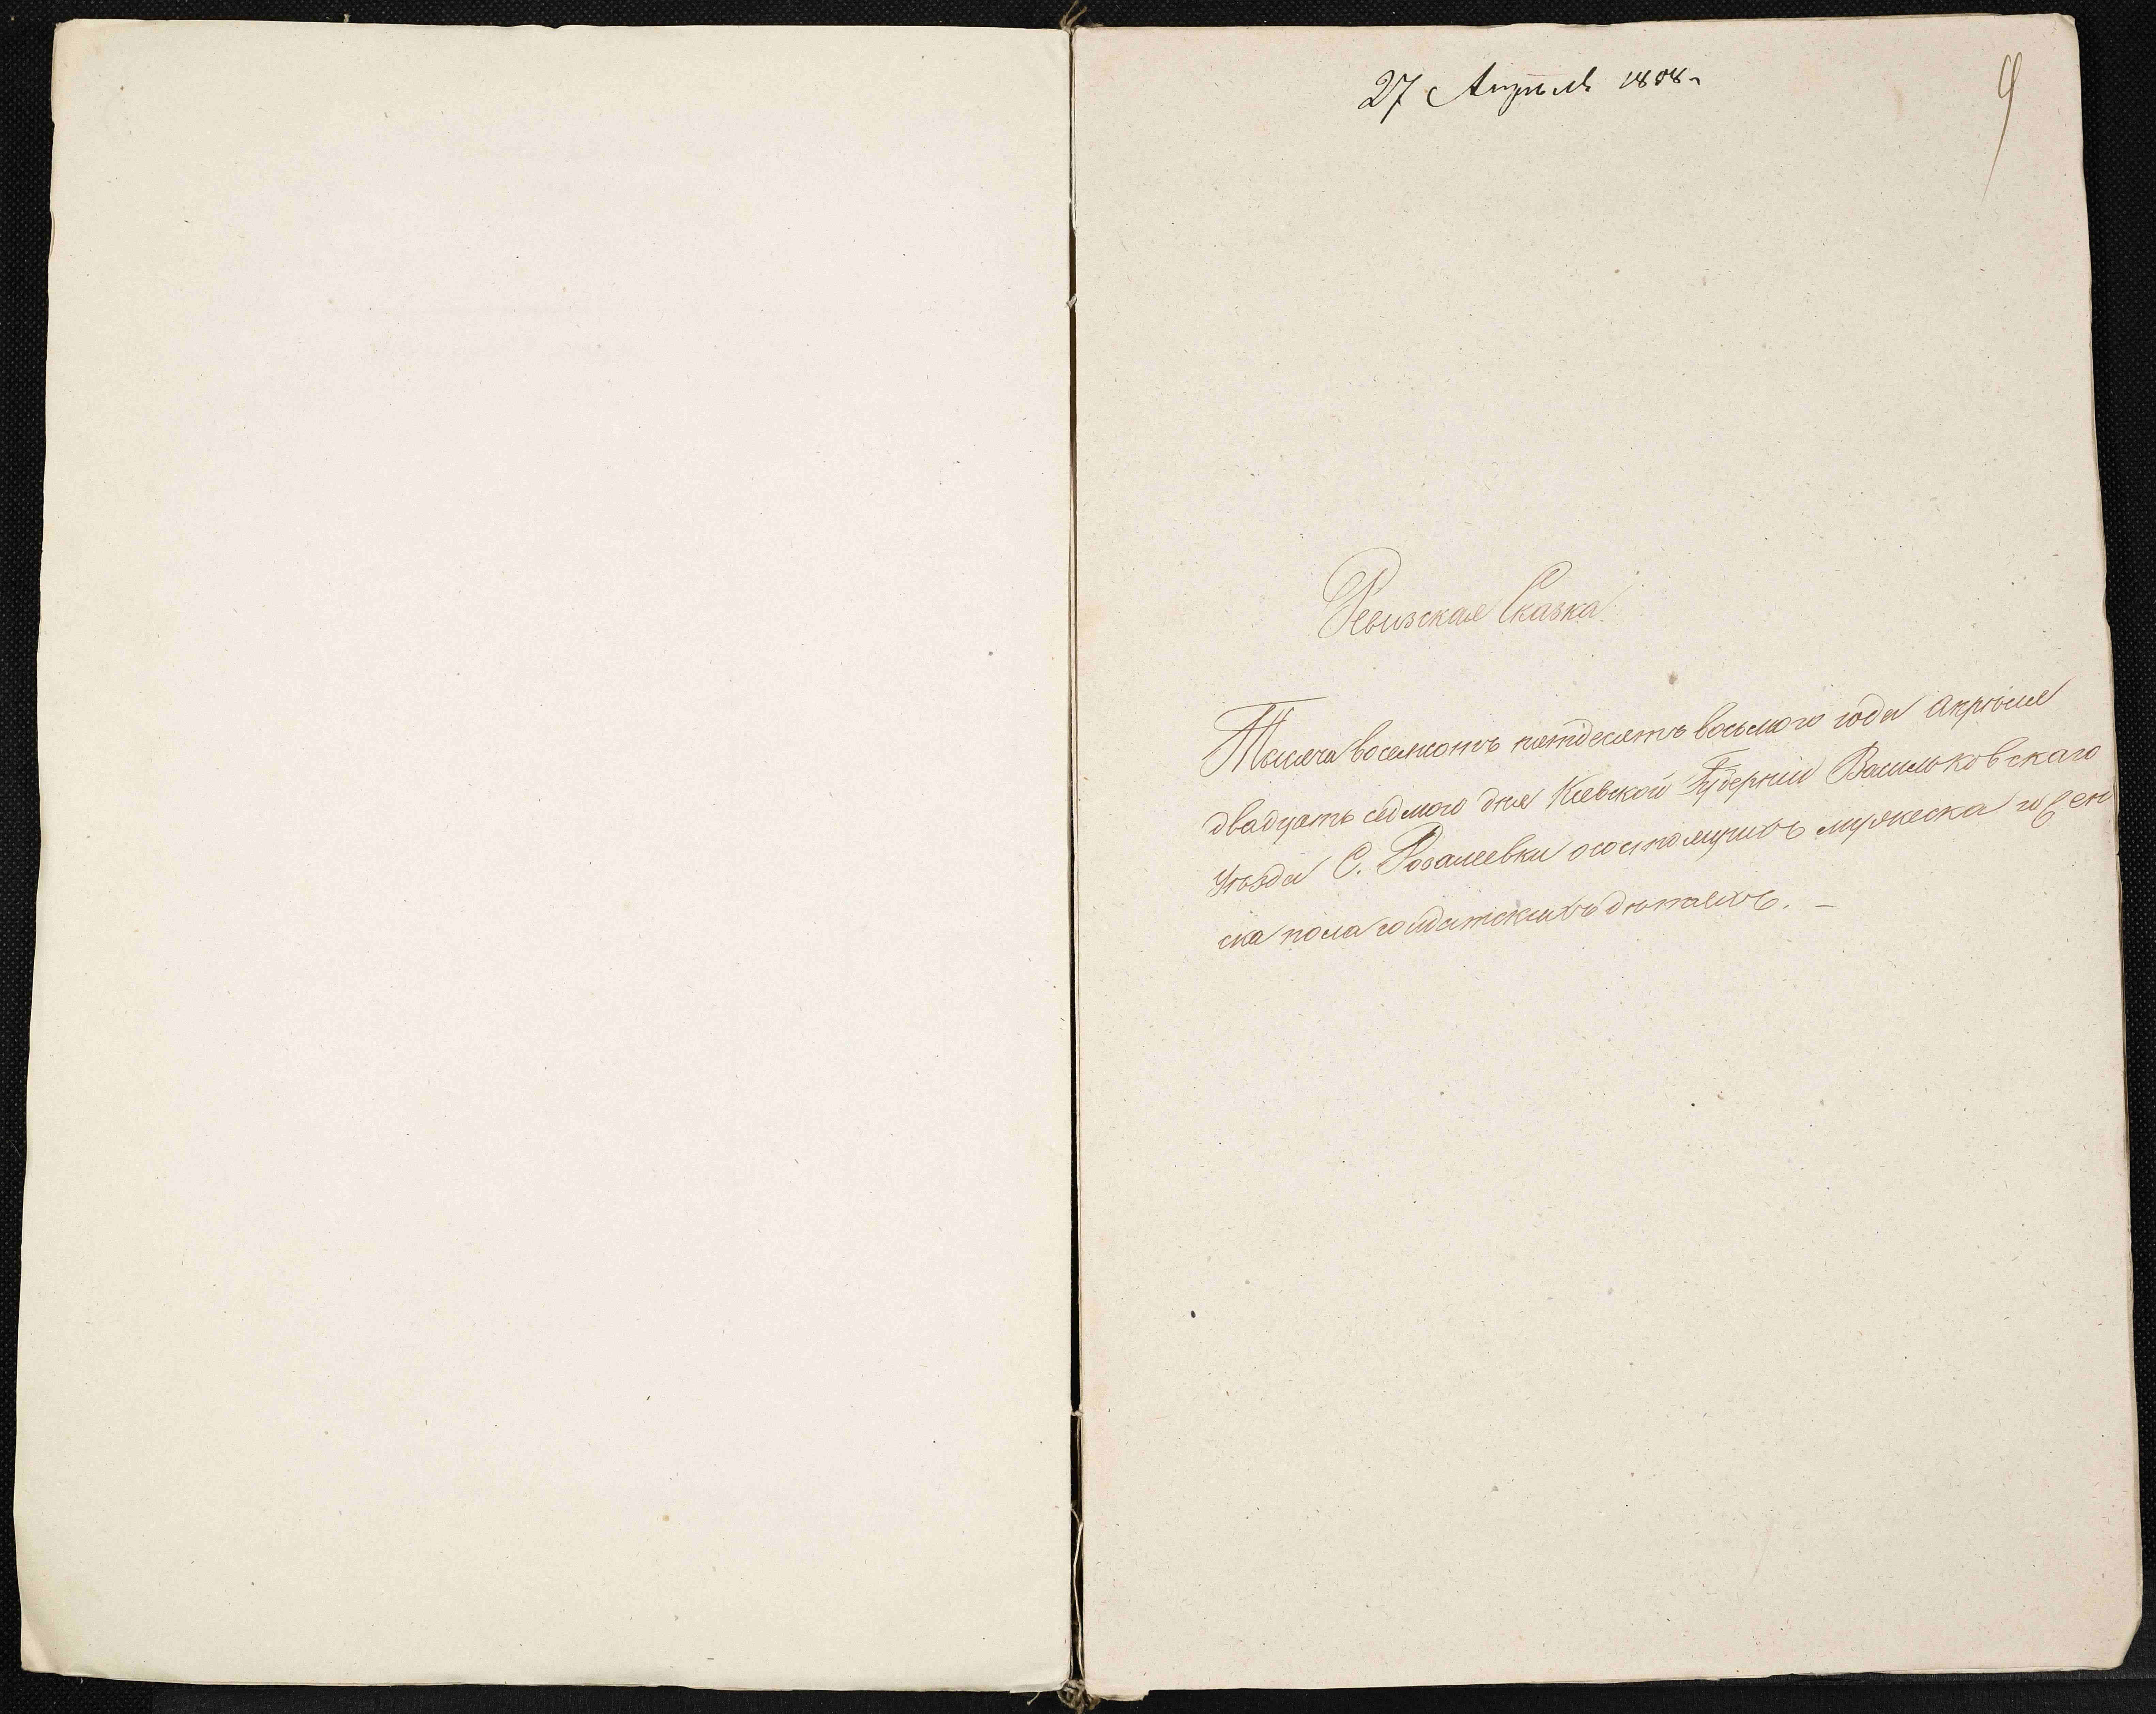 27 Апрѣля 1858 г.
9
Ревизская Сказка.
Тысяча восемсотъ пятдесятъ восьмого года Апрѣля
двадцать седмого дня Киевской Губернии Васильковскаго
Уѣзда С. Розалеевки о состоящихъ мужеска и жен
ска пола солдатскихъ дѣтяхъ. –